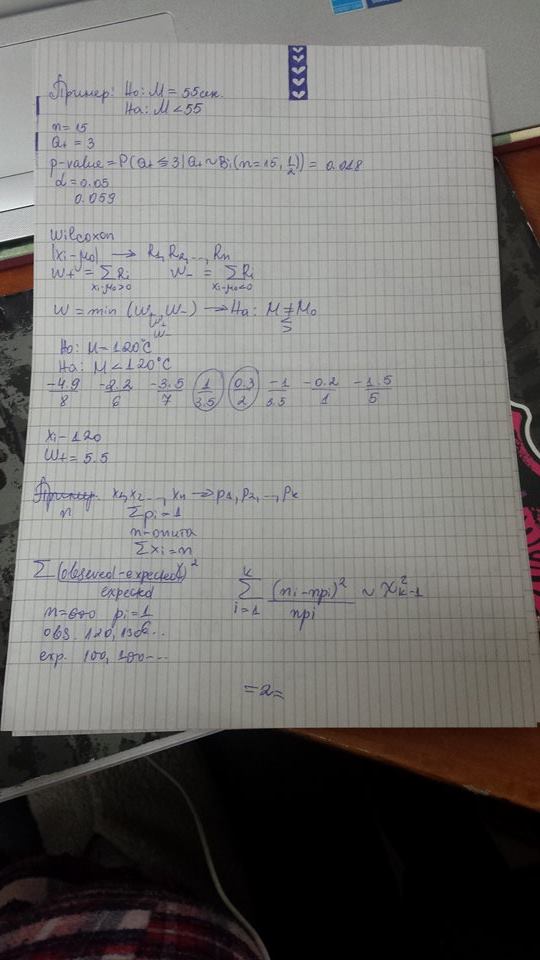 Пример: H0: M = 55 сек.
Ha: M < 55
n = 15
a+ = 3
p-value = P(a+ ≤ 3 | a+ ~ Bi(n=15, 1/2)) = 0.018
α = 0.05
0.059
Wilcoxon
|xi-μ0| → R1, R2, ..., Rn
W+ = ∑ Ri xi-μ0>0 W- = ∑ Ri xi-μ0<0
W = min (W+, W-) → Ha: M ≠ M0
W+ <
W- >
H0: M = 120°C
Ha: M < 120°C
-4.9/8 -2.2/6 -3.5/7 1/3.5 0.3/2 -1/3.5 -0.2/1 -1.5/5
xi - 120
W+ = 5.5
Пример x1, x2, ..., xn → p1, p2, ..., pk
n ∑pi = 1
n-опита
∑xi = n
∑ (observed-expected)²/expected ∑ i=1 k (ni-npi)²/npi ~ χ²k-1
n=600 pi = 1
obs. 120, 136...
exp. 100, 100...
=2=